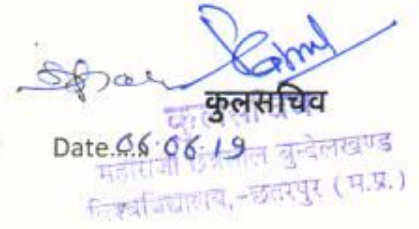 कुलसचिव
Date.....06.06.19
महाराजा छत्रसाल बुन्देलखण्ड
विश्वविद्यालय,-छतरपुर (म.प्र.)